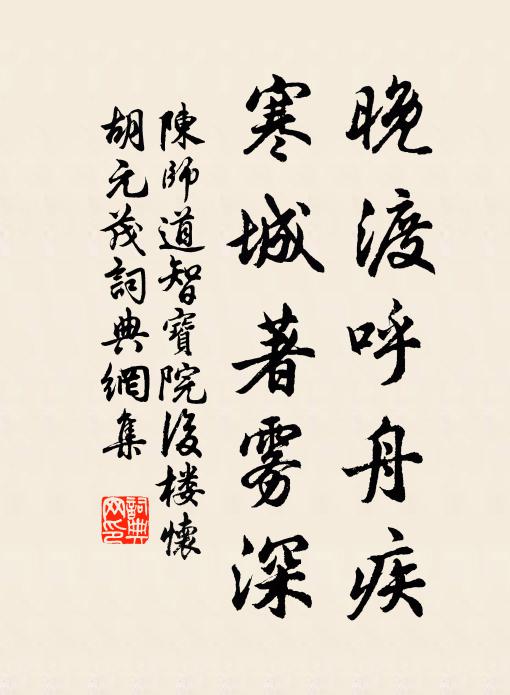 晚渡呼舟疾
寒城著雾深
陳師道智寶院後楼懷
胡元茂詞典網集
詞典
网印